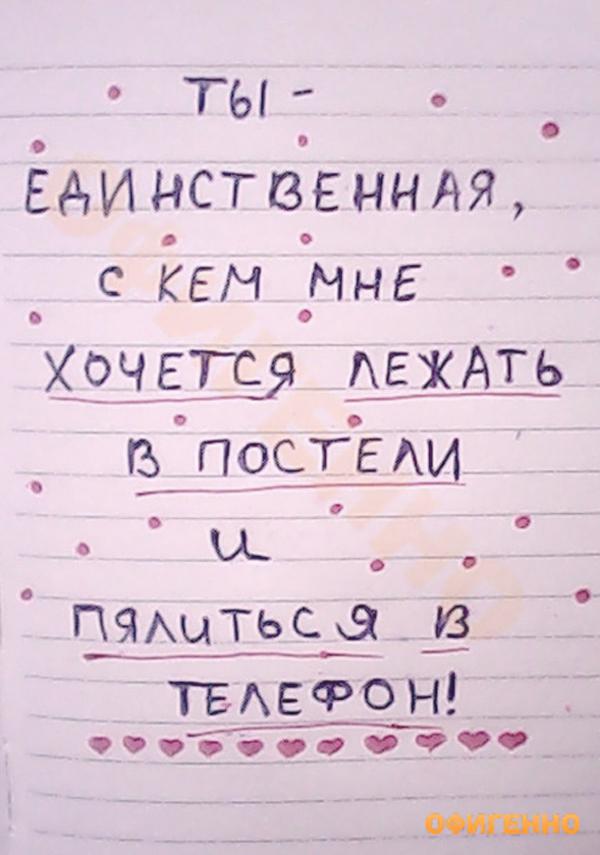 ТЫ -
ЕДИНСТВЕННАЯ,
С КЕМ МНЕ
ХОЧЕТСЯ ЛЕЖАТЬ
В ПОСТЕЛИ
И
ПЯЛИТЬСЯ В
ТЕЛЕФОН!
ОФИГЕННО
ОФИГЕННО